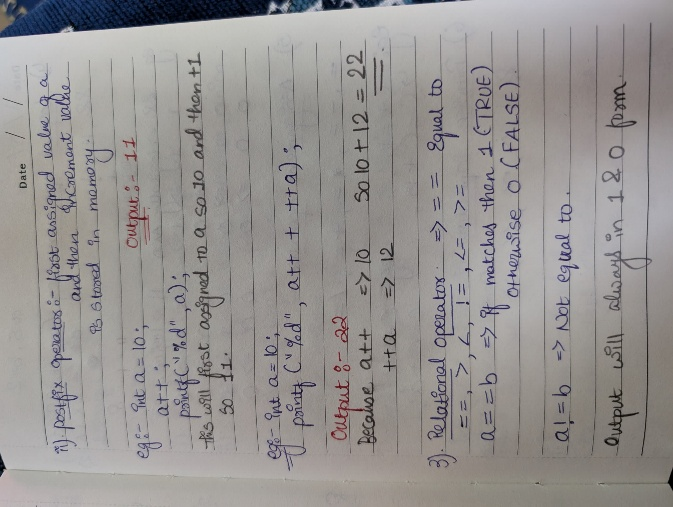 Date / /
ii) postfix operator :- first assigned value of a
and then increment value
is stored in memory.
eg:- int a=10; Output :- 11
a++;
printf("%d", a);
this will first assigned to a so 10 and then +1
so 11.
eg:- int a=10;
printf ("%d", a++ + ++a);
Output :- 22
Because a++ => 10 so 10 + 12 = 22
++a => 12
3). Relational operator. => == Equal to
==, >, <, !=, <=, >=
a==b => If matches then 1 (TRUE)
otherwise 0 (FALSE).
a!=b => Not equal to.
Output will always in 1 & 0 form.